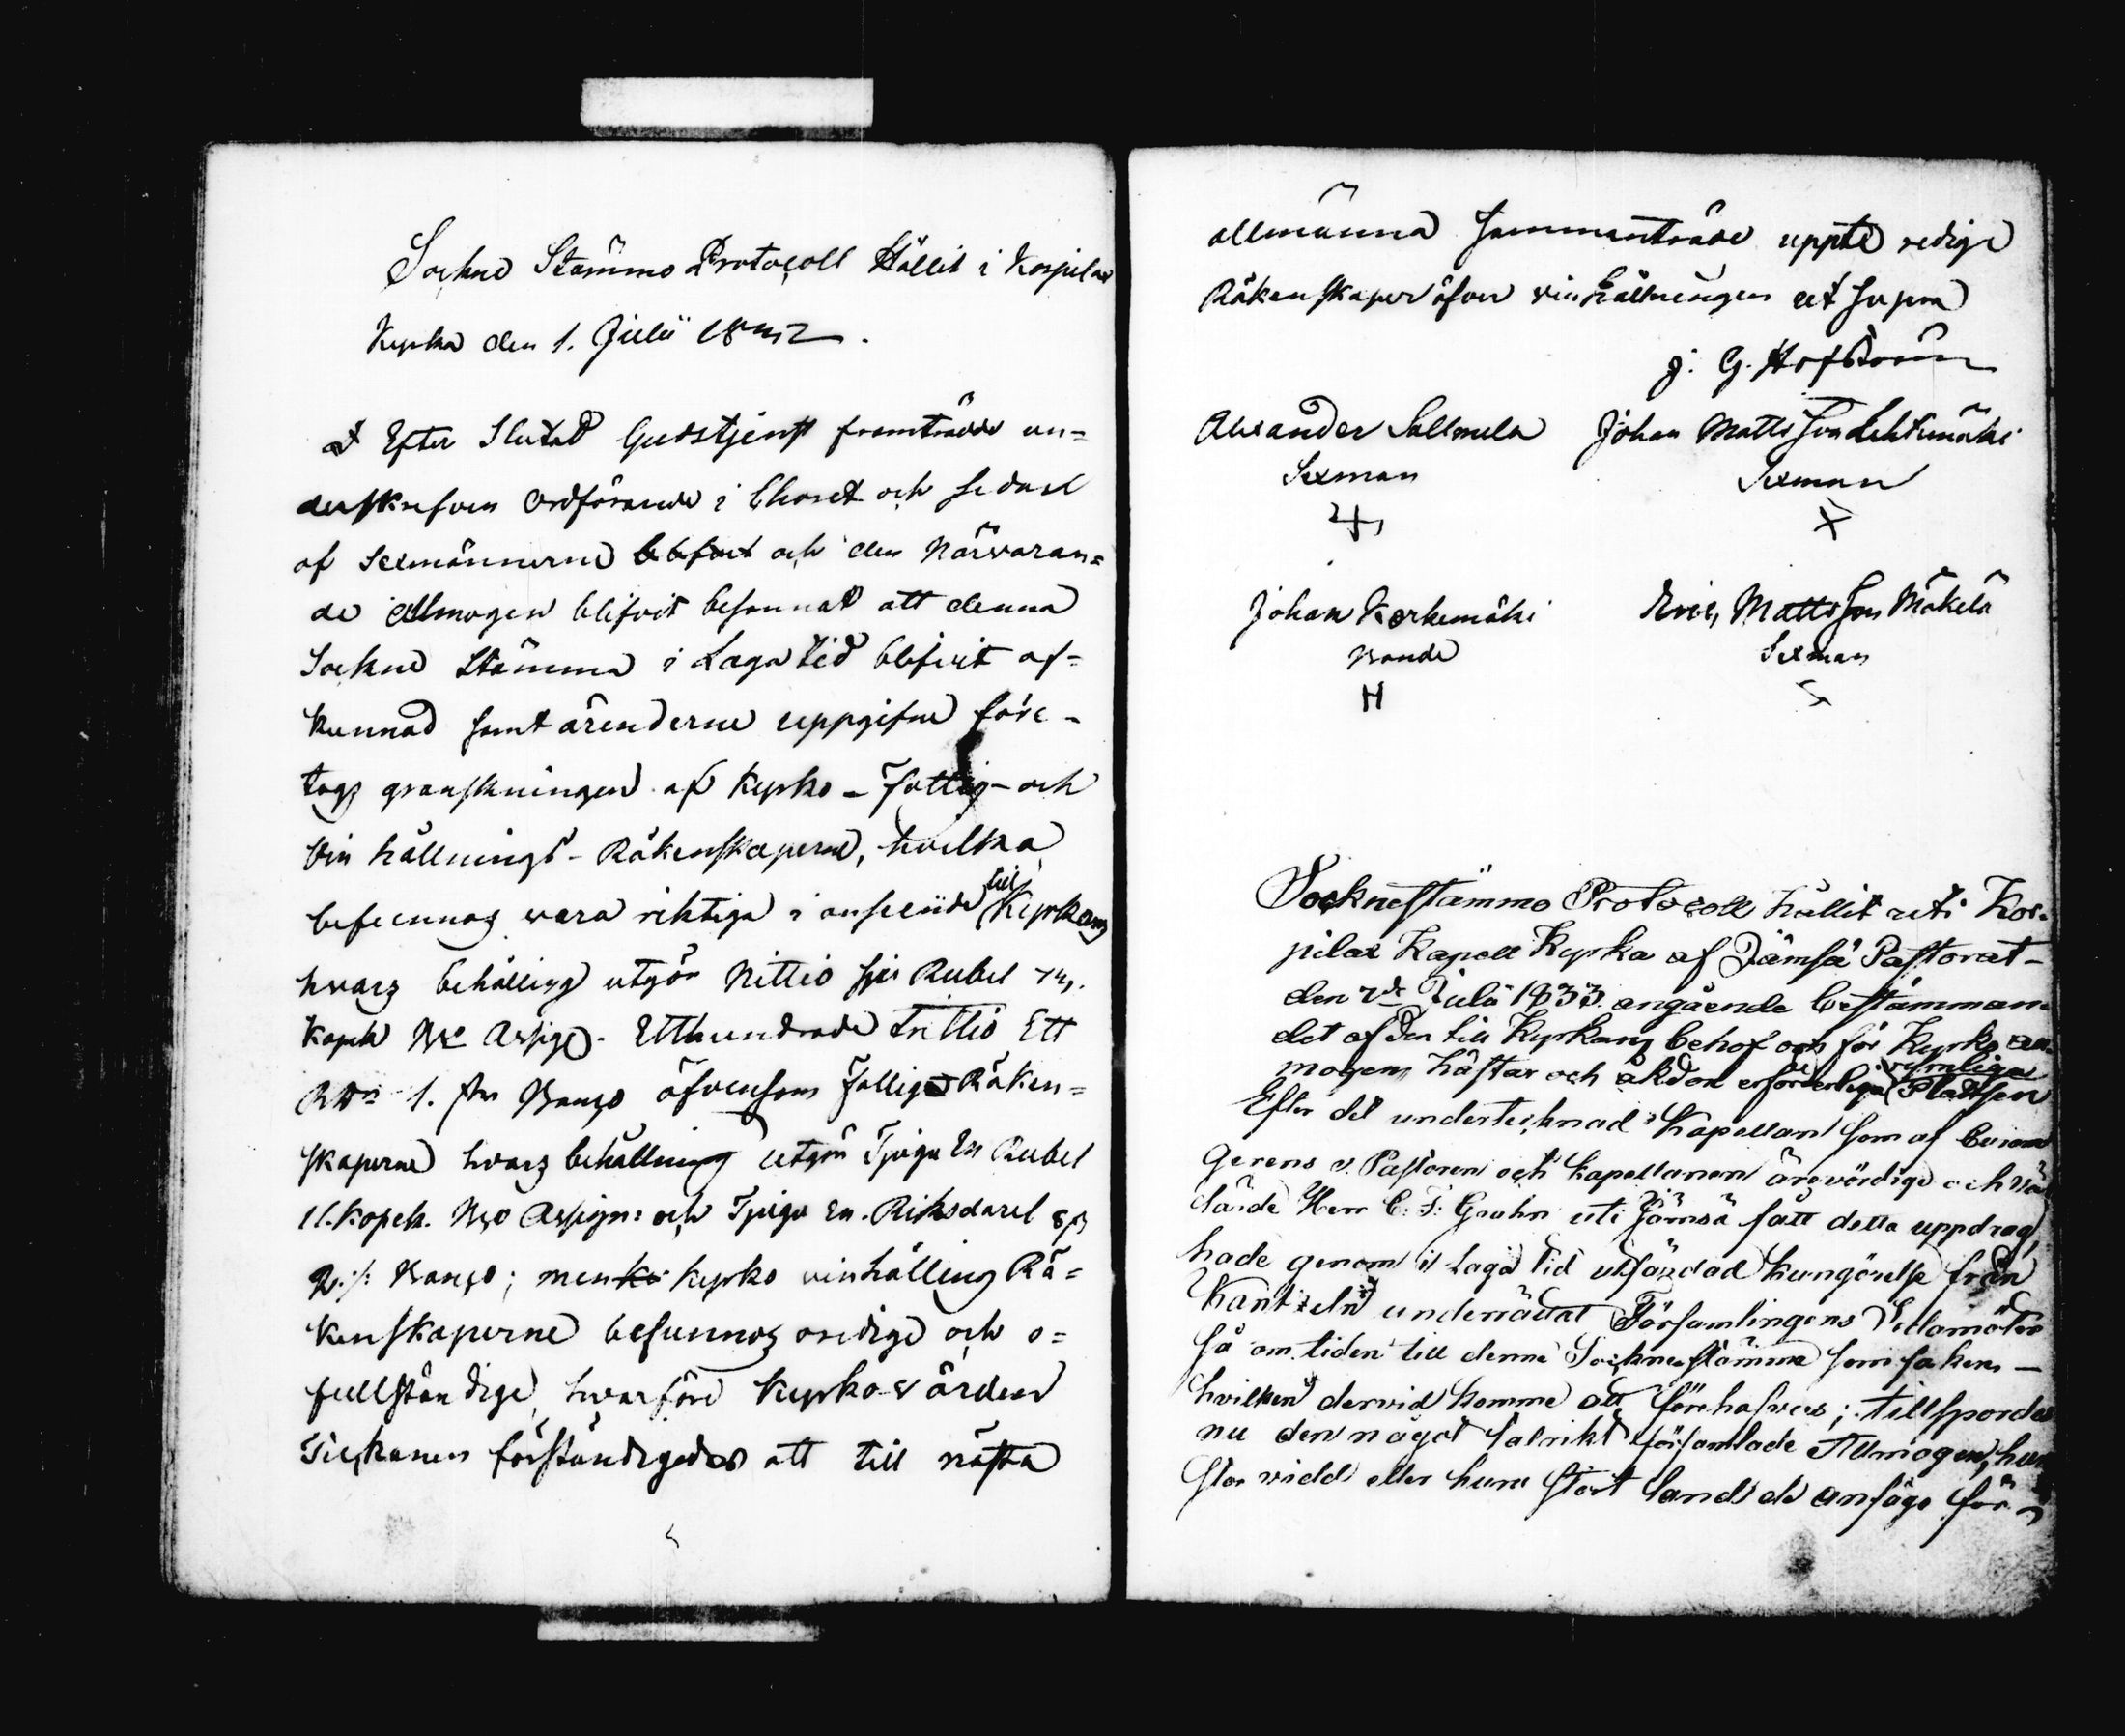 Sockne Stämmo Protocoll Hållit i Korpilax
Kyrka den 1. Julii
Efter Slutad Gudstjenst framträdde un=
derskrefven Ordförande i Choret och sedan
af Sexmännerne och den Närvaran=
de Allmogen blifvit besannat att denna
Sockne Stämma i Laga tid blifvit af=
kunnad samt ärenderne uppgifne före-
togs granskningen af Kyrko- Fattig- och
Vin hållnings- Räkenskaperne, hvilka
befunnos vara riktiga i anseende till Kyrkans
hvars behålling utgör Nittio sju Rubel
Kopek Bco Assign. Etthundrade Trettio Ett
Rdr 1. s. Banco äfvensom Fattig Räken=
skaperne hvars behållning utgör Tjugu En Rubel
11. Kopek. Bco Assign: och Tjugu En. Riksdaler 8 s
Banco; men Kyrko vinhålling Rä=
kenskaperne befunnos oredige och o=
fullständige, hvarföre Kyrko-värden
förständigades att till nästa
allmänna sammanträde uppte redige
Räkenskaper öfver vinhållningen ut supra
J. G. Hofström
Alexander Sallmela Johan Matts Son Lehtimäki
Sexman Sexman
Johan Kerkemäki Eric Matts Son Mäkelä
Bonde Sexman
H
Sockne Stämmo Protocoll hållit uti Kor-
pilax Kapell Kyrka af Jämsä Pastorat-
den 7de Julii 1833. angående bestämman-
det af den till Kyrkans behof och för Kyrko all-
mogens hästar och åkdon erforderliga rymliga Plattsen
Efter det undertecknad Kapellan som af
Gerens v. Pastoren och Kapellanen ärevördige och väl
lärde Herr C. F. Grahn uti Jämsä fått detta uppdrag,
hade genom i Laga tid utfärdad kungörelse från
Kantzeln underrättat Församlingens Ledamöter
så om tiden till denna Sockne stämma som saken-
hvilken dervid komme att förehafvas; tillspordes
nu den något talrikt församlade Allmogen, huru
stor vidd eller huru stort land de ansågo för